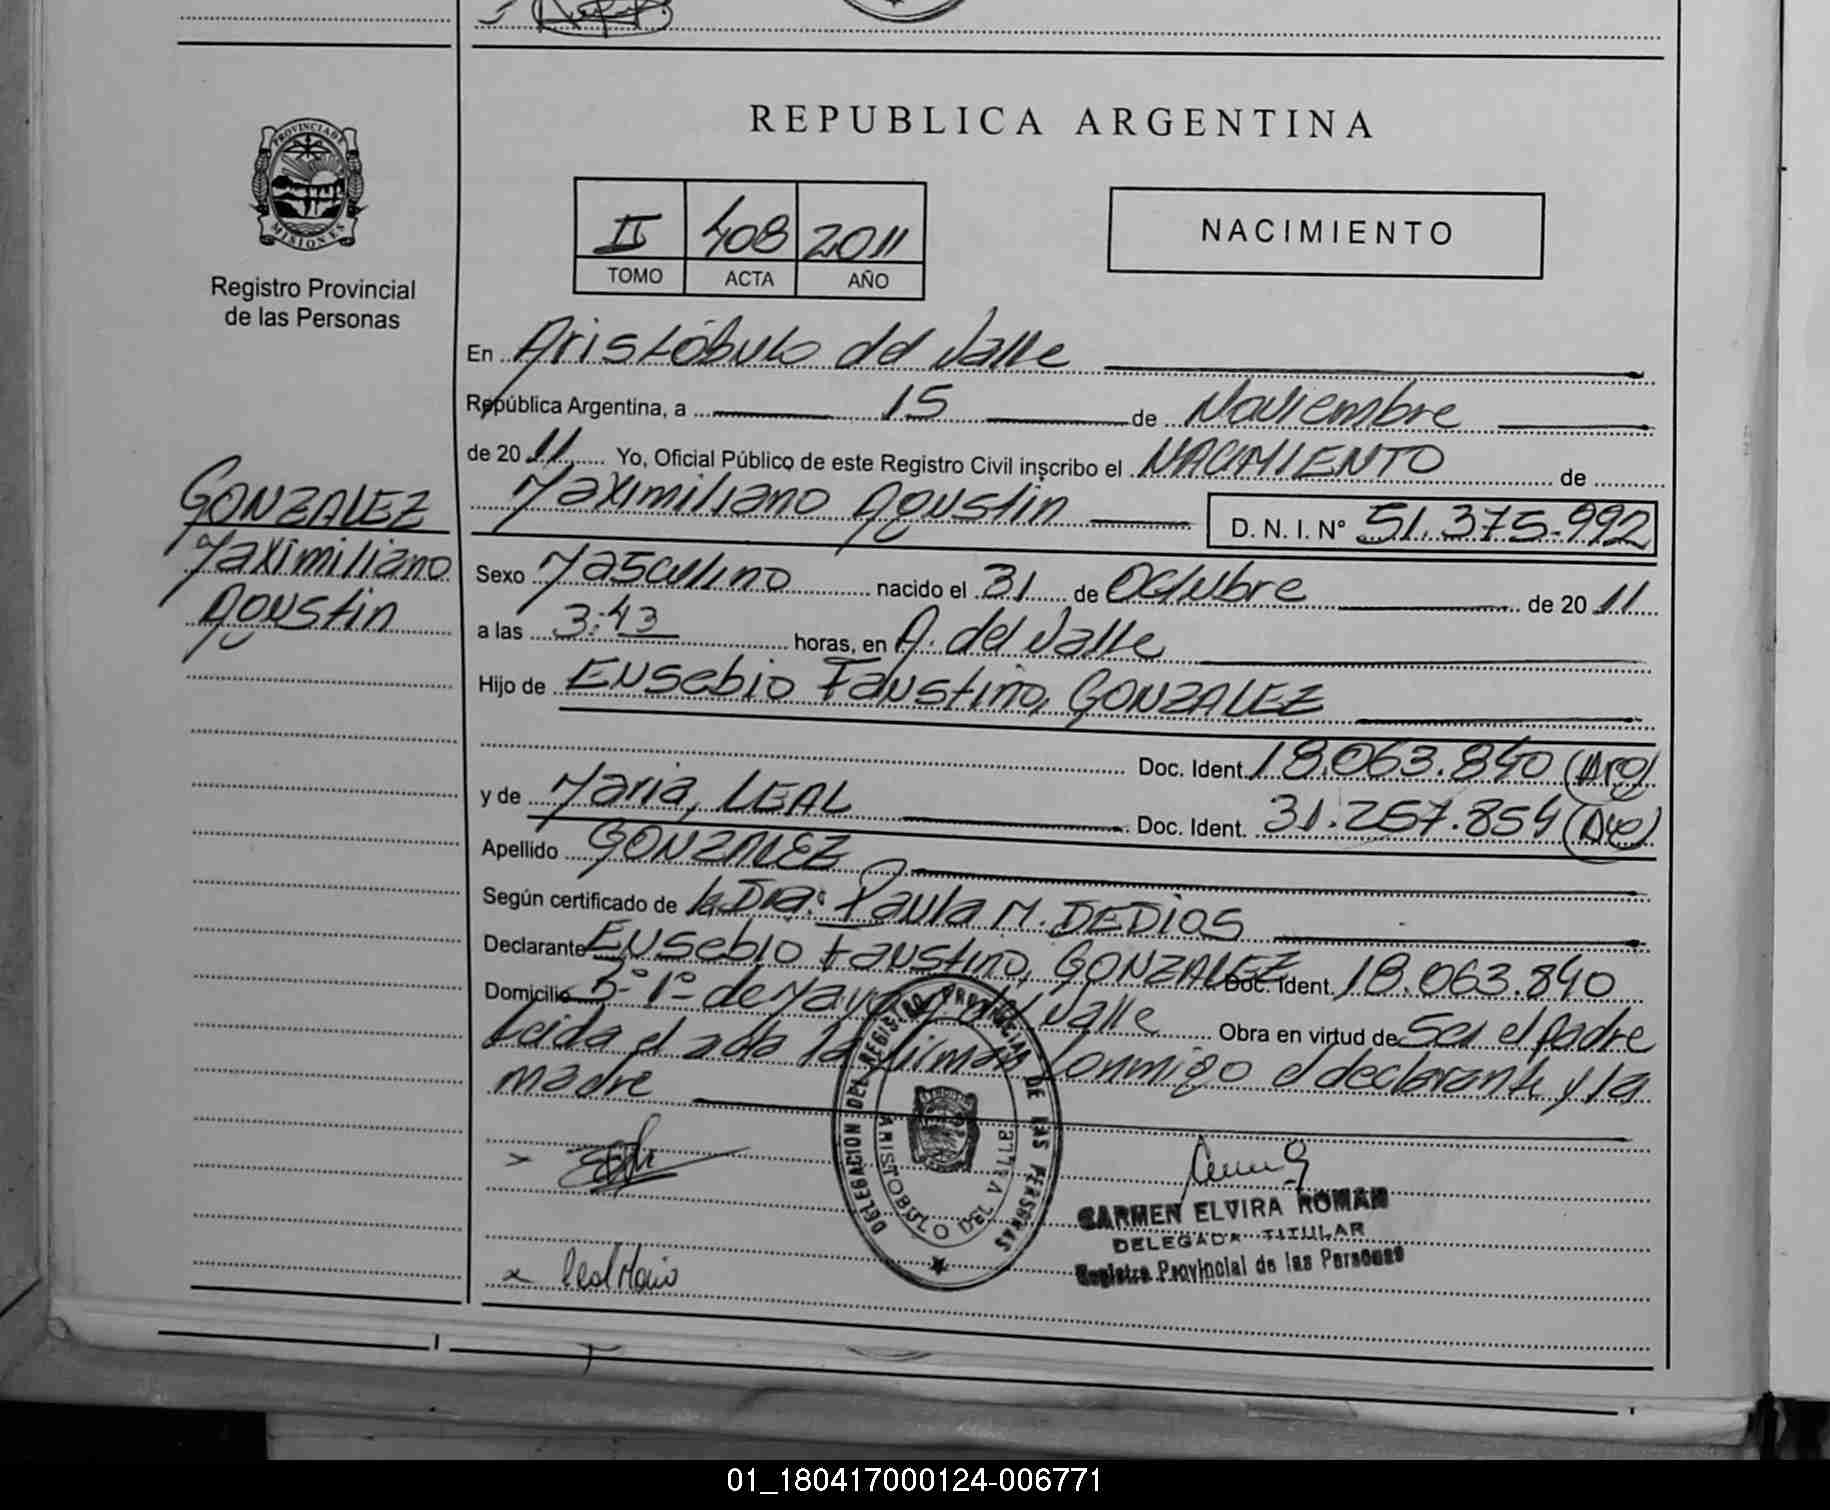 REPUBLICA ARGENTINA
PROVINCIA DE
MISIONES
Registro Provincial
de las Personas
II 408 2011
TOMO ACTA AÑO
NACIMIENTO
En Aristóbulo del Valle
República Argentina, a 15 de Noviembre
de 2011 Yo, Oficial Público de este Registro Civil inscribo el NACIMIENTO de
Maximiliano Agustin D. N. I. Nº 51.375.992
GONZALEZ
Maximiliano
Agustin
Sexo Masculino nacido el 31 de Octubre de 2011
a las 3:43 horas, en A. del Valle
Hijo de Eusebio Faustino, GONZALEZ
Doc. Ident. 18.063.840 (Arg)
y de Maria, LEAL Doc. Ident. 31.257.854 (Arg)
Apellido GONZALEZ
Según certificado de la Dra. Paula M. DEDIOS
Declarante Eusebio Faustino, GONZALEZ Doc. Ident. 18.063.840
Domicilio Bº 1º de Mayo Valle Obra en virtud de Ser el padre
Leida el acta la firman conmigo el declarante y la
madre
DELEGACION DEL REGISTRO PROVINCIAL DE LAS PERSONAS
ARISTOBULO DEL VALLE
CARMEN ELVIRA ROMAN
DELEGADA TITULAR
Registro Provincial de las Personas
x Leal Maria
01_180417000124-006771